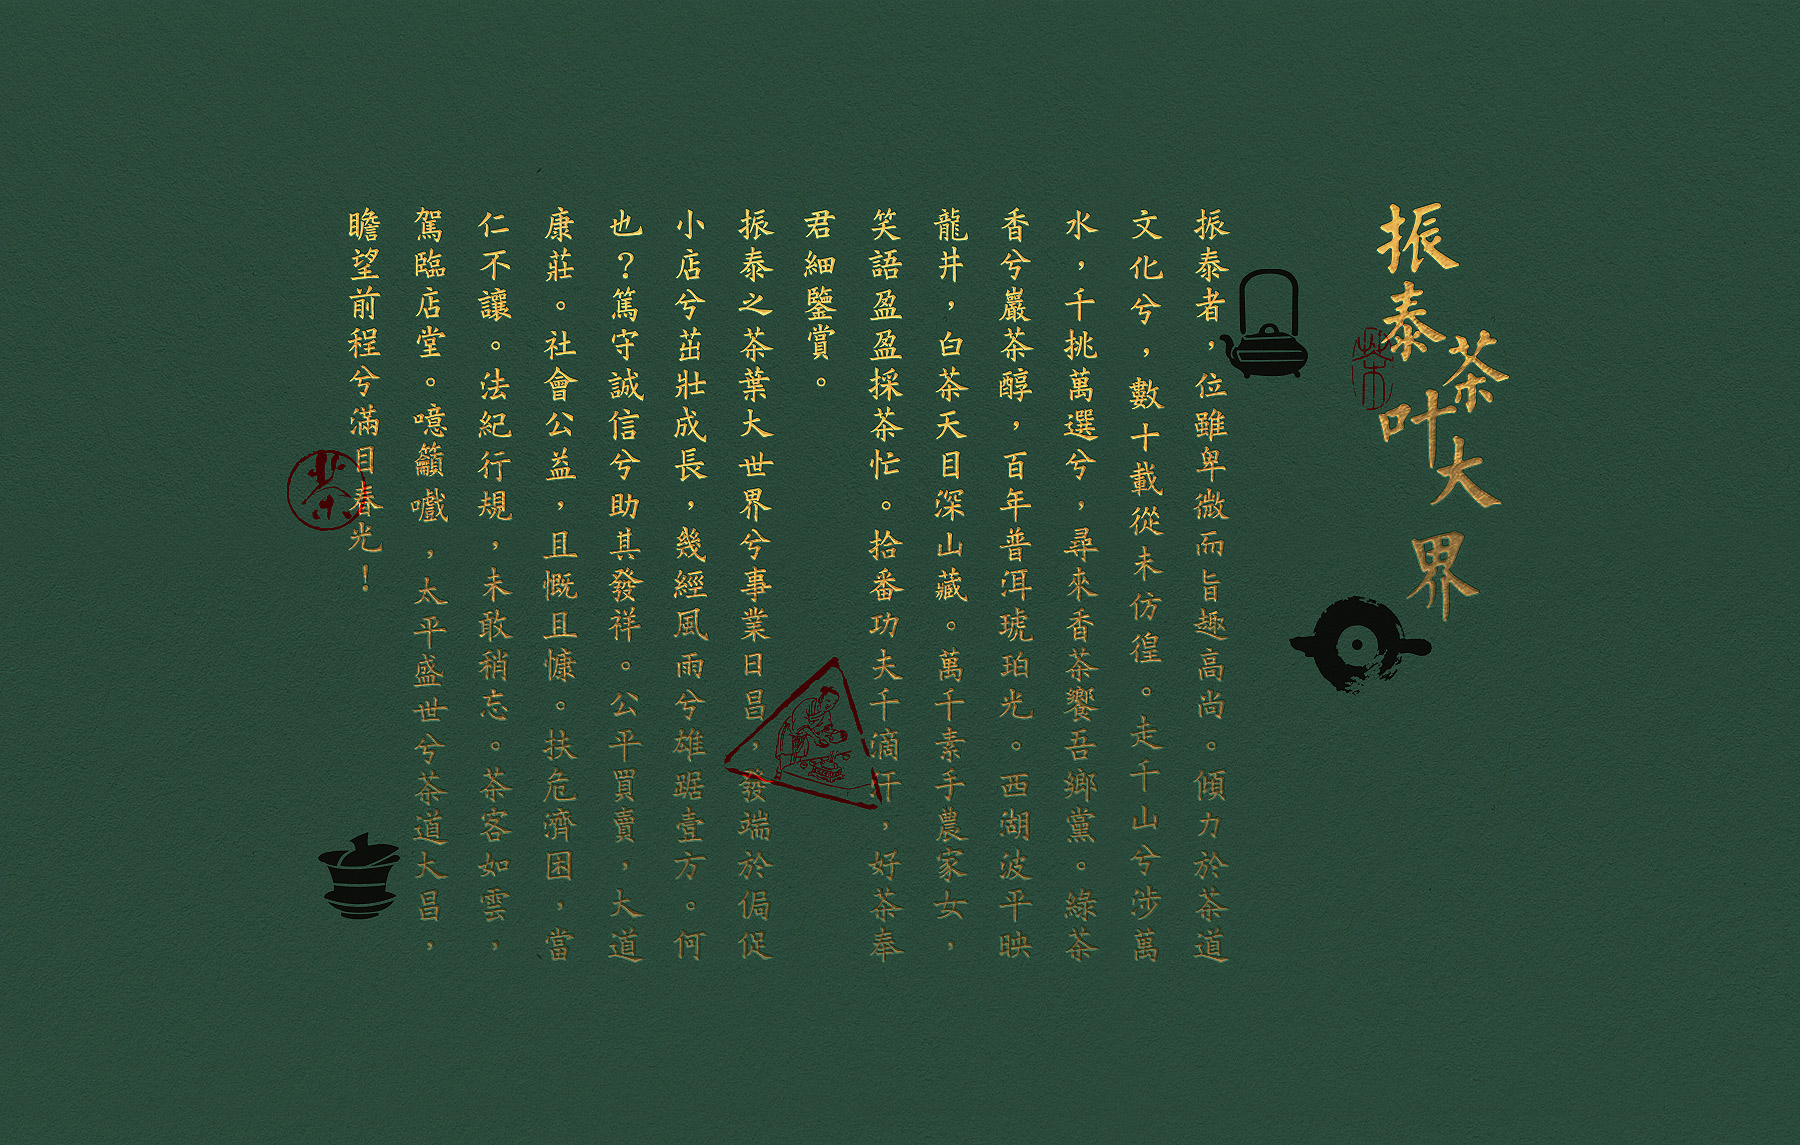 振泰茶叶大界
振泰者，位雖卑微而旨趣高尚。傾力於茶道
文化兮，數十載從未仿徨。走千山兮涉萬
水，千挑萬選兮，尋來香茶饗吾鄉黨。綠茶
香兮巖茶醇，百年普洱琥珀光。西湖波平映
龍井，白茶天目深山藏。萬千素手農家女，
笑語盈盈採茶忙。拾番功夫千滴汗，好茶奉
君細鑒賞。
振泰之茶葉大世界兮事業日昌，發端於侷促
小店兮茁壯成長，幾經風雨兮雄踞壹方。何
也？篤守誠信兮助其發祥。公平買賣，大道
康莊。社會公益，且慨且慷。扶危濟困，當
仁不讓。法紀行規，未敢稍忘。茶客如雲，
駕臨店堂。噫籲嚱，太平盛世兮茶道大昌，
瞻望前程兮滿目春光！
茶
茶